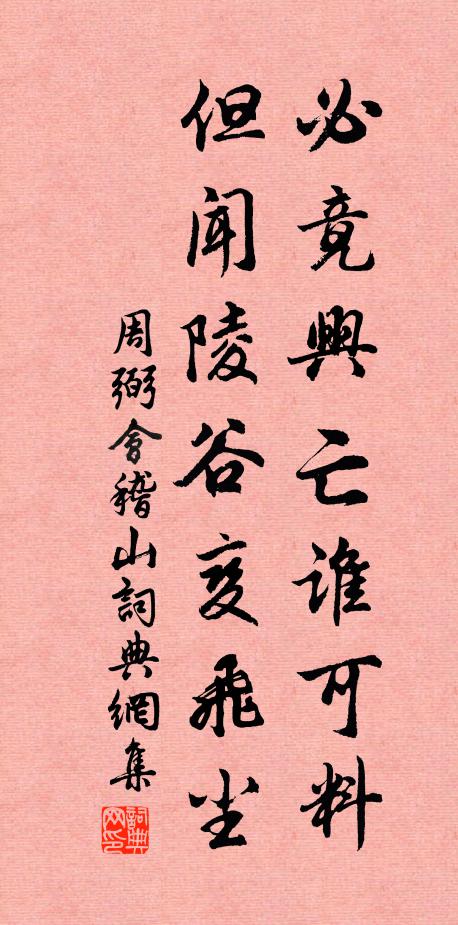 必竟興亡誰可料
但聞陵谷变飛尘
周弼會稽山詞典網集
詞典网印